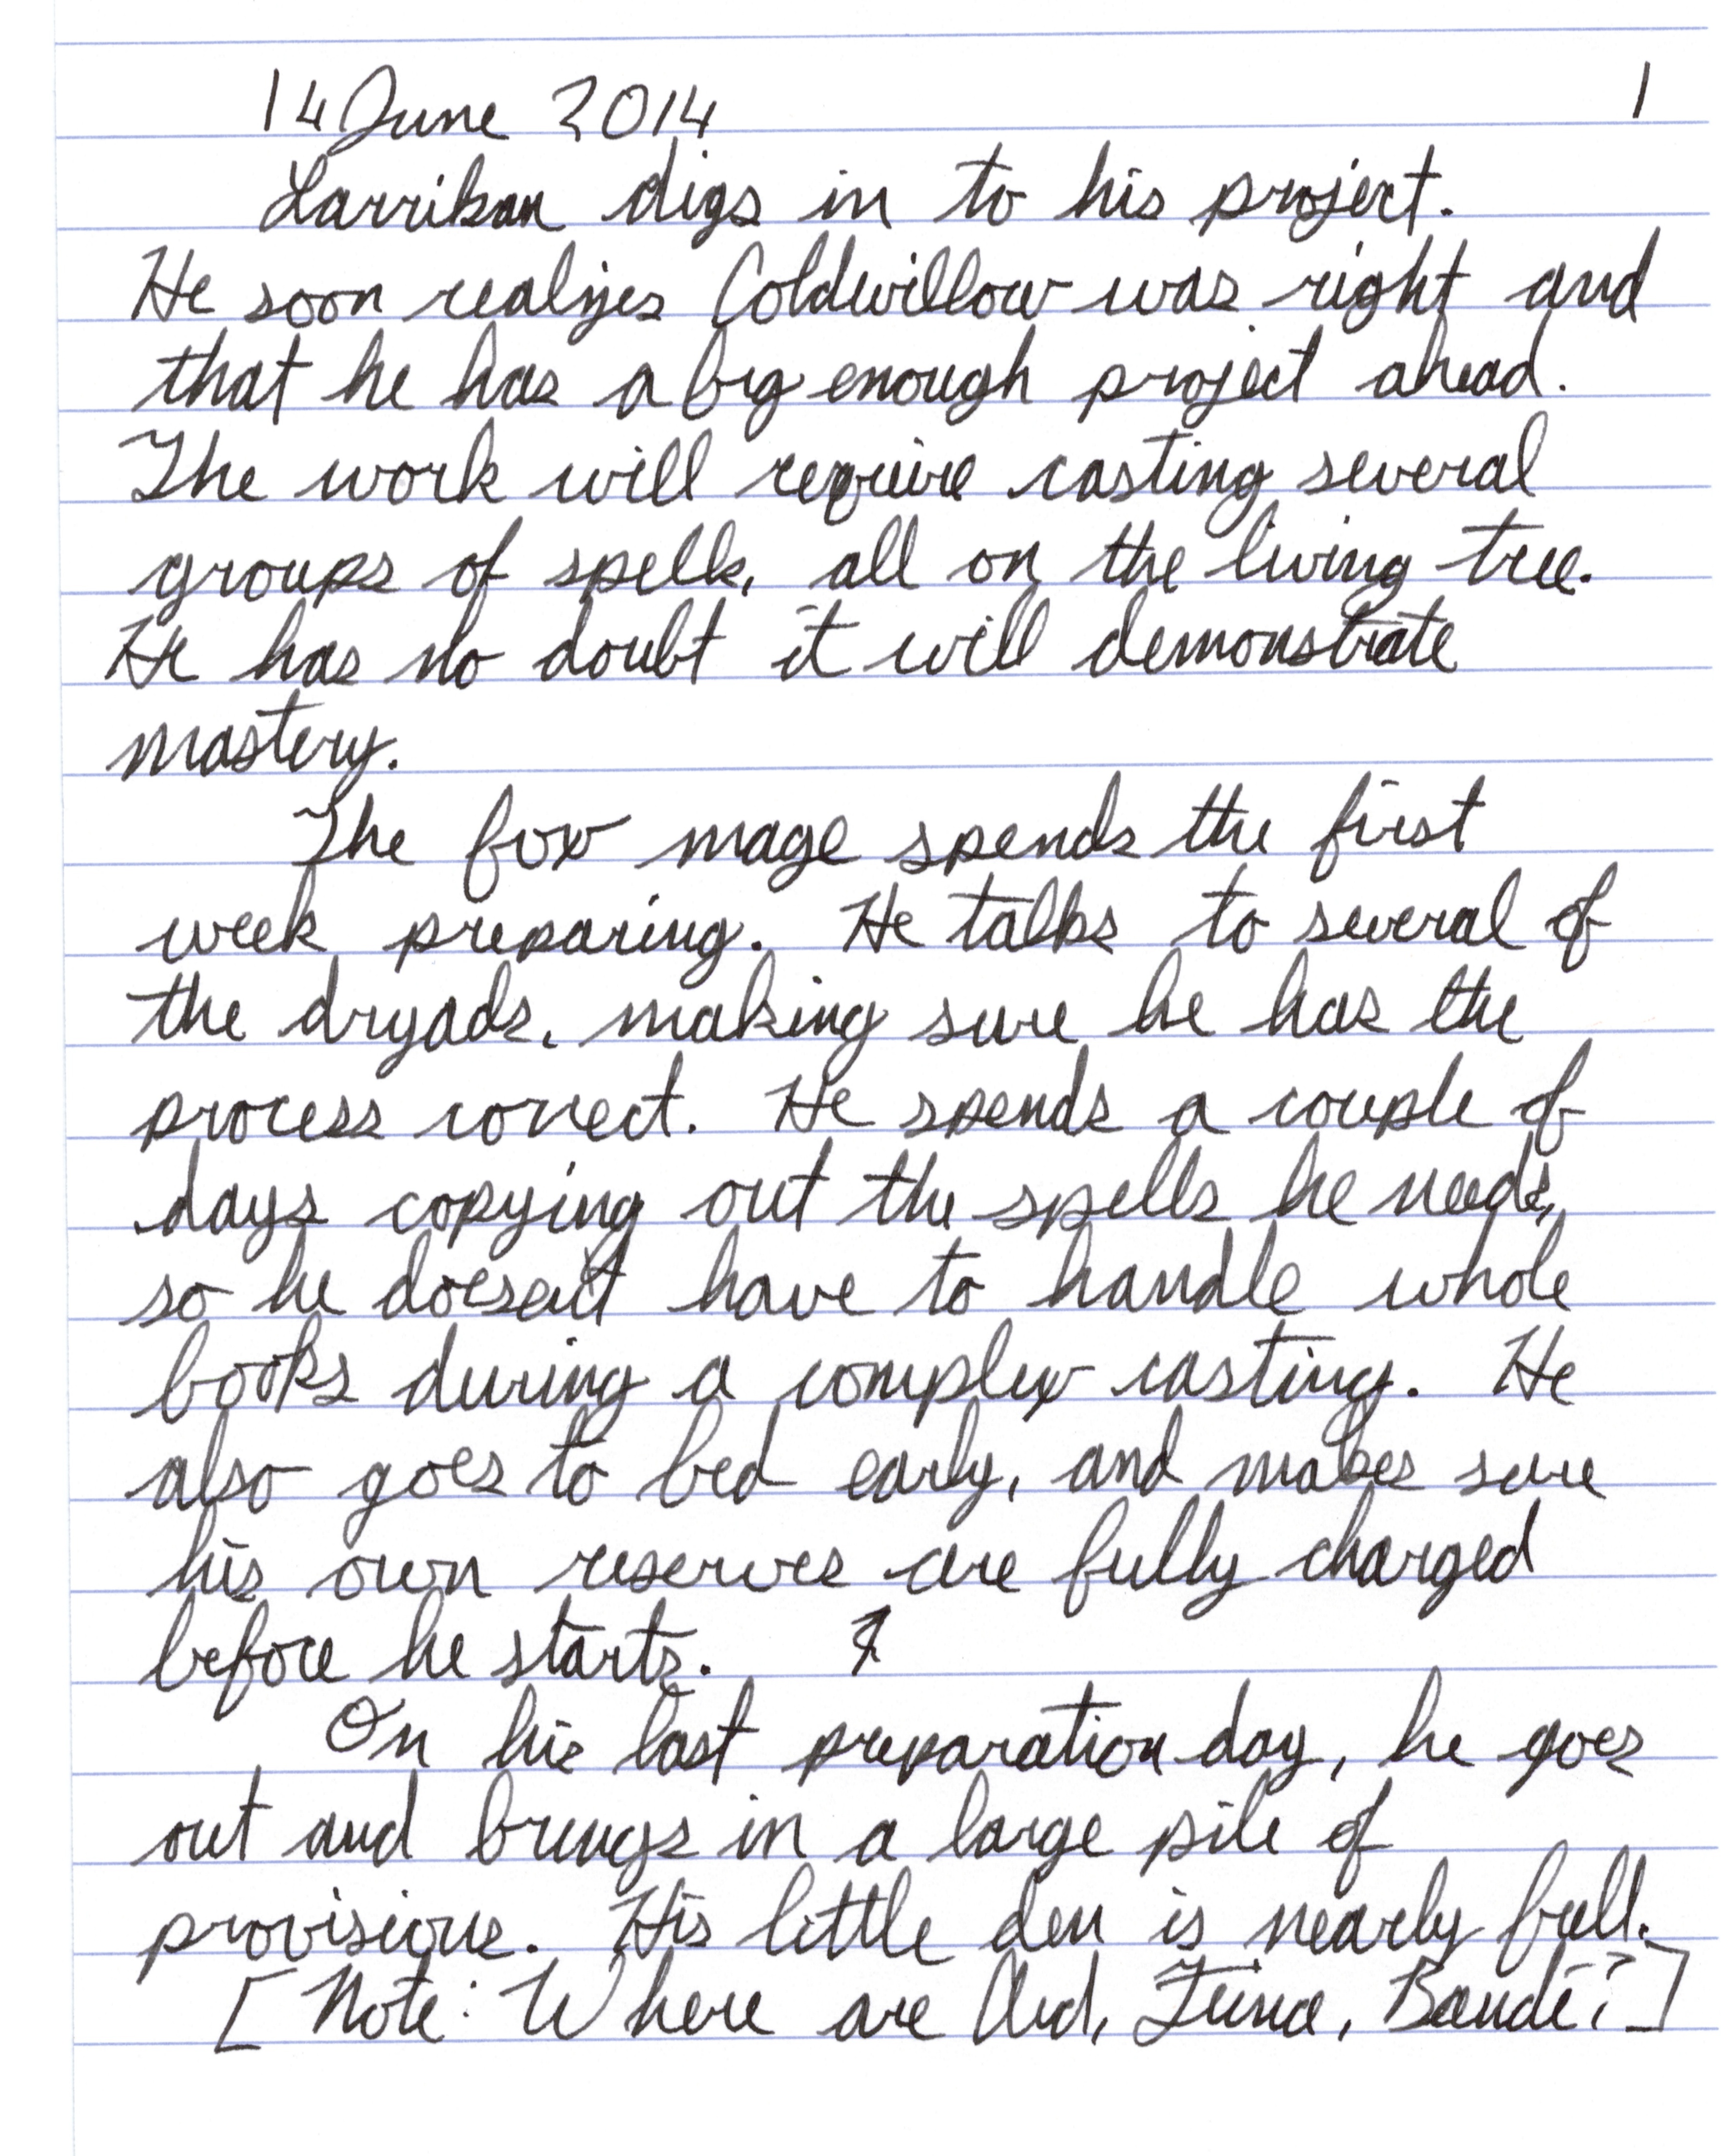 14 June 2014 1
Larrikan digs in to his project.
He soon realizes Coldwillow was right and
that he has a big enough project ahead.
The work will require casting several
groups of spells, all on the living tree.
He has no doubt it will demonstrate
mastery.
The fox mage spends the first
week preparing. He talks to several of
the dryads, making sure he has the
process correct. He spends a couple of
days copying out the spells he needs,
so he doesn't have to handle whole
books during a complex casting. He
also goes to bed early, and makes sure
his own reserves are fully charged
before he starts.
On his last preparation day, he goes
out and brings in a large pile of
provisions. His little den is nearly full.
[Note: Where are